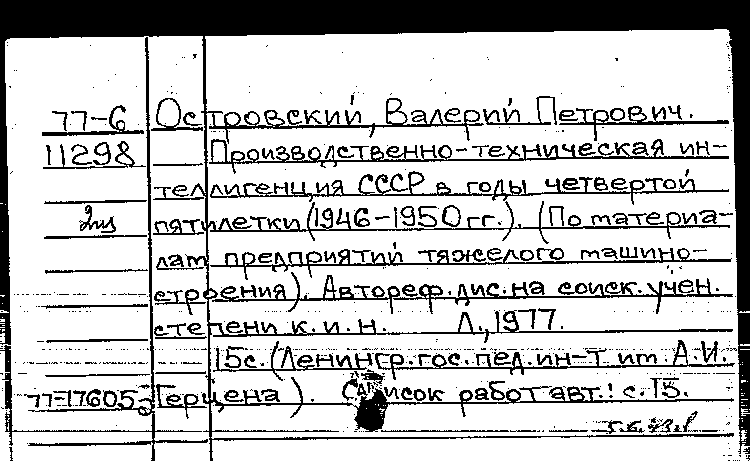 77-6 Островский, Валерий Петрович.
11298 Производственно-техническая ин-
теллигенция СССР в годы четвертой
2пз пятилетки (1946-1950гг.). (По материа-
лам предприятий тяжелого машино-
строения). Автореф.дис.на соиск.учен.
степени к.и.н. Л.,1977.
15с.(Ленингр.гос.пед.ин-т им.А.И.
77-17605 Герцена). Список работ авт.: с.15.